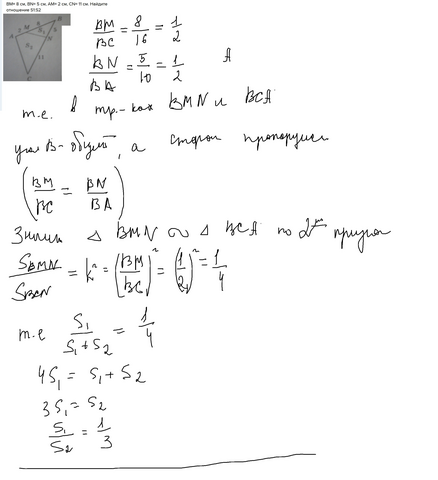 BM= 8 см, BN= 5 см, AM= 2 см, CN= 11 см. Найдите
отношение S1:S2
BM/BC = 8/16 = 1/2
BN/BA = 5/10 = 1/2
A
т.е. в тр.-ках BMN и BCA
угол B - общий, а сторон
(BM/BC = BN/BA)
Значит △ BMN ∾ △ BCA по 2
S_BMN/S_BCN = k² = (BM/BC)² = (1/2)² = 1/4
т.е S₁/S₁+S₂ = 1/4
4S₁ = S₁ + S₂
3S₁ = S₂
S₁/S₂ = 1/3